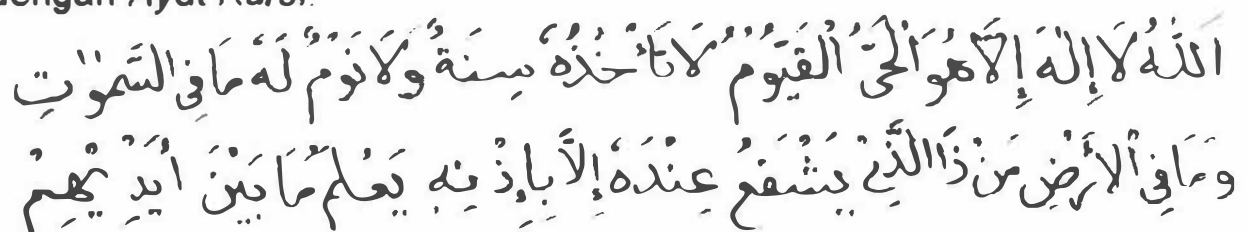 dengan Ayat Kursi.
اللّٰهُ لَا إِلٰهَ إِلَّا هُوَ الْحَيُّ الْقَيُّومُ لَا تَأْخُذُهُ سِنَةٌ وَلَا نَوْمٌ لَهُ مَا فِى السَّمٰوٰتِ
وَمَا فِى الْأَرْضِ مَنْ ذَا الَّذِيْ يَشْفَعُ عِنْدَهُ إِلَّا بِإِذْنِهِ يَعْلَمُ مَا بَيْنَ أَيْدِيْهِمْ